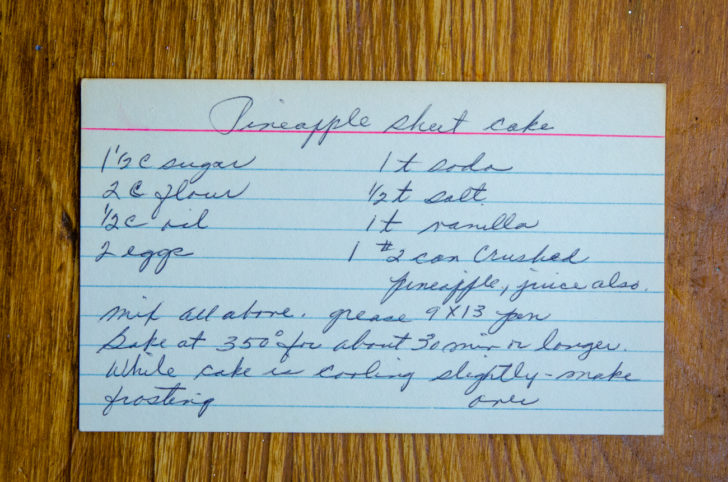 Pineapple sheet cake
1 1/2 c sugar 1 t soda
2 c flour 1/2 t salt
1/2 c oil 1 t vanilla
2 eggs 1 #2 can Crushed
pineapple, juice also.
mix all above. grease 9X13 pan
Bake at 350° for about 30 min or longer.
While cake is cooling slightly - make
frosting over